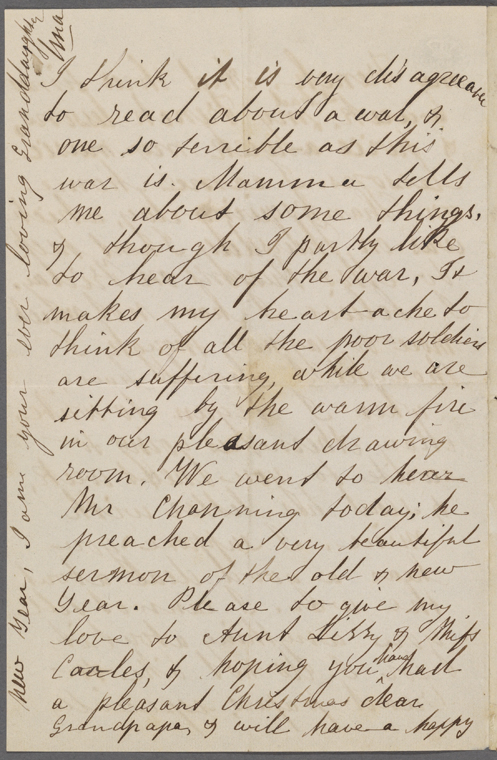 I think it is very disagreeable
to read about a war, &
one so terrible as this
war is. Mamma tells
me about some things,
& though I partly like
to hear of the war, It
makes my heart ache to
think of all the poor soldiers
are suffering, while we are
sitting by the warm fire
in our pleasant drawing
room. We went to hear
Mr Channing today; he
preached a very beautiful
sermon of the old & new
Year. Please to give my
love to Aunt Lizzy & Miss
& hoping you have had
a pleasant Christmas dear
Grandpapa, & will have a happy
New Year, I am your ever loving Granddaughter